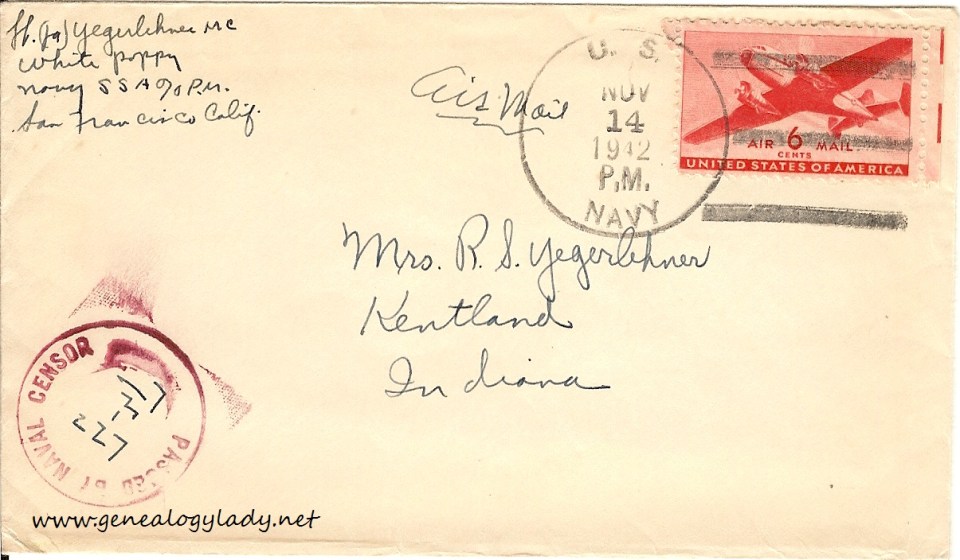 Lt. (jg) Yegerlehner MC
White Poppy
Navy SSA c/o P.M.
San Francisco Calif.
Air Mail
U. S.
NOV
14
1942
P.M.
NAVY
AIR 6 MAIL
CENTS
UNITED STATES OF AMERICA
Mrs. R. S. Yegerlehner
Kentland
Indiana
PASSED BY NAVAL CENSOR
227
www.genealogylady.net